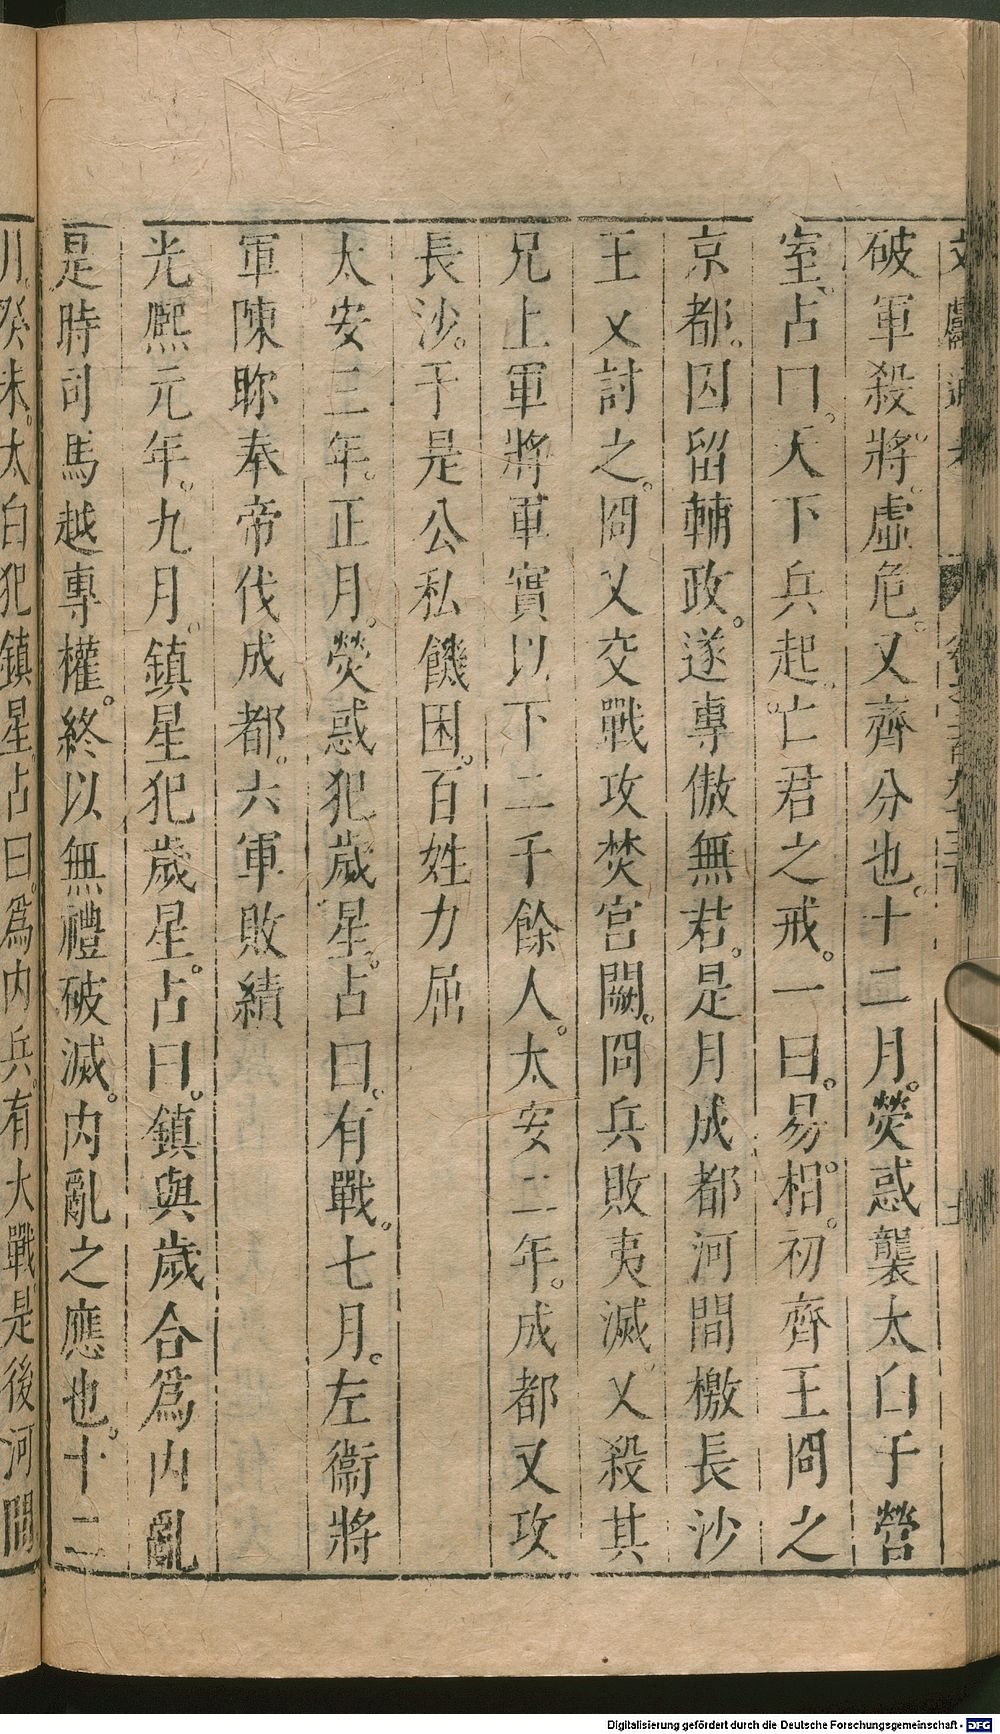 破軍殺將。虛危。又齊分也。十二月。熒惑襲太白于營
室。占曰。天下兵起。亡君之戒。一曰。易相。初齊王冏之
京都。因留輔政。遂專傲無君。是月成都河間檄長沙
王乂討之。冏乂交戰攻焚宮闕。冏兵敗夷滅。又殺其
兄上軍將軍實以下二千餘人。太安二年。成都又攻
長沙。于是公私饑困。百姓力屈
太安三年。正月。熒惑犯歲星。占曰。有戰。七月。左衞將
軍陳眕奉帝伐成都。六軍敗績
光熙元年。九月。鎮星犯歲星。占曰。鎮與歲合爲內亂
是時司馬越專權。終以無禮破滅。內亂之應也。十二
月。癸未。太白犯鎮星。占曰。爲內兵。有大戰是後河間
Digitalisierung gefördert durch die Deutsche Forschungsgemeinschaft - DFG